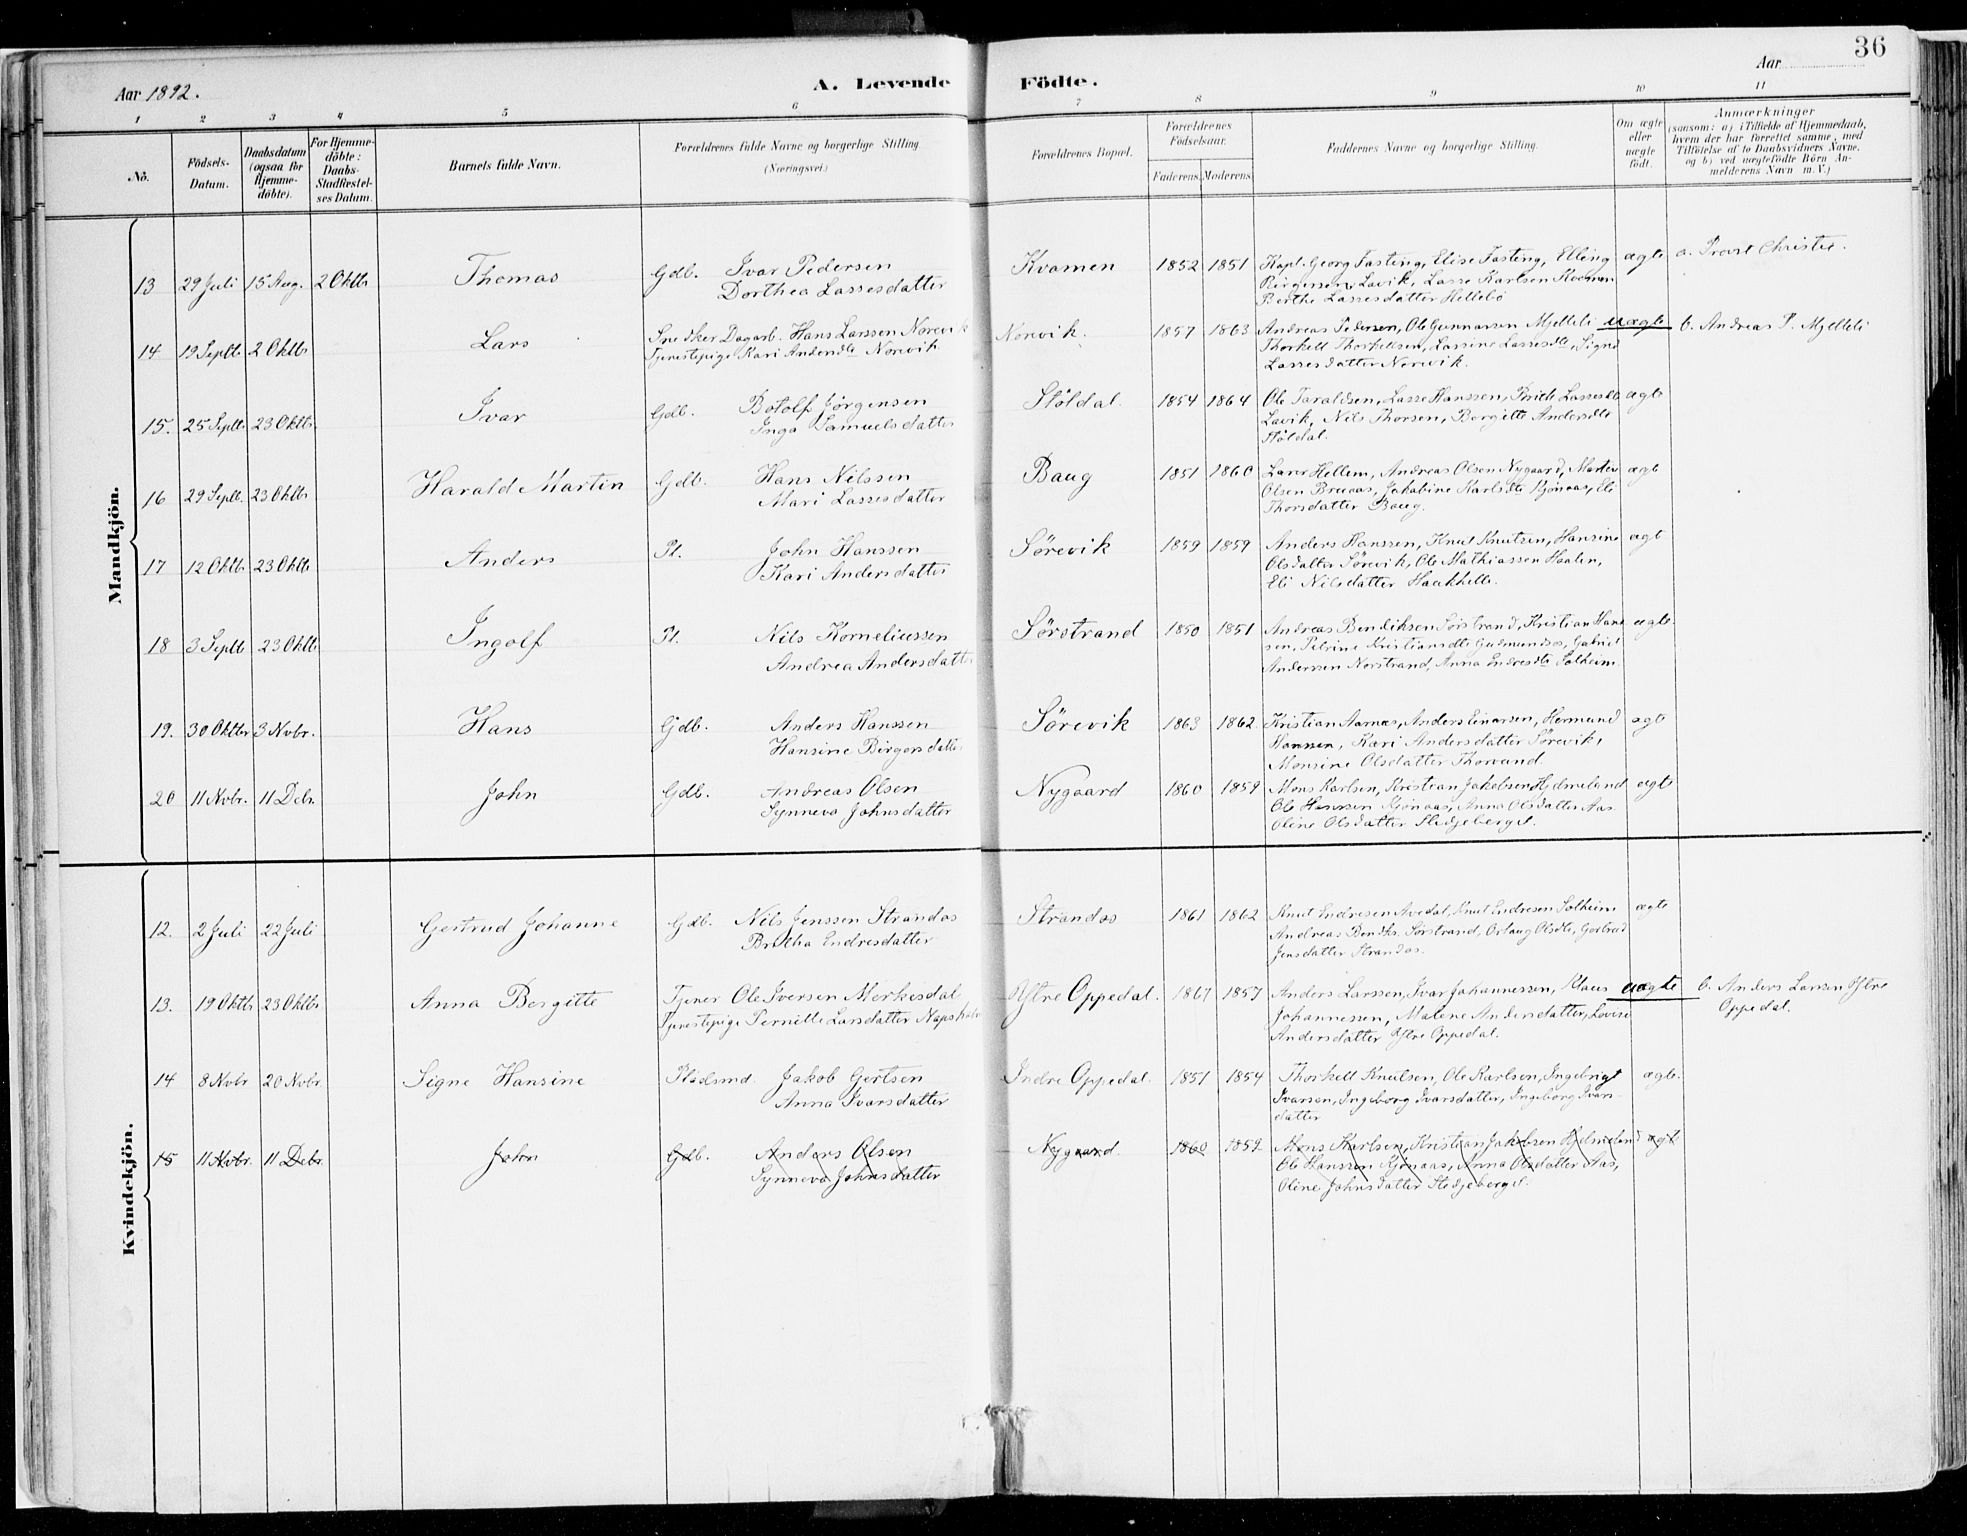 36
Aar 1892.
A. Levende
Födte.
Aar
1 2 3 4 5 6 7 8 9 10 11
Nò.
Födsels-Datum.
Daabsdatum (ogsaa for Hjemme-döbte).
For Hjemme-döbte: Daabs-Stadfæstel-ses Datum.
Barnets fulde Navn.
Forældrenes fulde Navne og borgerlige Stilling
(Næringsvei.)
Forældrenes Bopæl.
Forældrenes Födselsaar.
Faderens. Moderens.
Faddernes Navne og borgerlige Stilling.
Om ægte eller uægte födt.
Anmærkninger
(saasom: a) i Tilfælde af Hjemmedaab,
hvem der har forrettet samme, med
Tilföielse af to Daabsvidners Navne,
og b) ved uægtefödte Börn An-
melderens Navn m.V.)
Mandkjön.
13 29 Juli 15 Aug. 2 Oktb Thomas Gdb. Ivar Pedersen
Dorthea Lassesdatter
Kvamen 1852 1851 Kapl. Georg Fasting, Elise Fasting, Elling
Birgersen Lavik, Lasse Karlsen Kvamen
Berthe Lassesdatter Hellebö
ægte a. Provst Christie.
14 19 Septb 2 Oktb Lars Snedker Dagarb. Hans Larssen Norevik
Tjenestepige Kari Andersdtr Norevik
Norevik. 1857 1863 Andreas Pedersen, Ole Gunnarsen Mjelleli
Thorkell Thorkellsen, Lassine Lassesdtr, Signe
Lassesdatter Norevik.
uægte b. Andreas P. Mjelleli
15. 25 Septb 23 Oktb Ivar Gdb. Botolf Jørgensen
Inga Samuelsdatter
Stöldal 1854 1864 Ole Taraldsen, Lasse Hanssen, Brite Lassesdtr
Lavik, Nils Thorsen, Bergitte Andersdtr
Stöldal.
ægte
16 29 Septb. 23 Oktb Harald Martin Gdb. Hans Nilssen
Mari Lassesdatter
Baug 1851 1860 Larer Hellem, Andreas Olsen Nygaard, Marten
Olsen Brunaas, Jakobine Karlsdtr Kjönaas, Eli
Thorsdatter Baug.
ægte
17 12 Oktb 23 Oktb Anders Pl. John Hanssen
Kari Andersdatter
Sörevik 1859 1859 Anders Hanssen, Knut Knutsen, Hansine
Olsdatter Sörevik, Ole Mathiassen Haalen,
Eli Nilsdatter Haakhelle.
ægte
18 3 Septb 23 Oktb Ingolf Pl. Nils Korneliussen
Andrea Andersdatter
Sörstrand 1850 1851 Andreas Bendiksen Sörstrand, Kristian Hans
sen, Petrine Kristiansdtr Gudmundsos, Gabriel
Anderssen Norstrand, Anna Endresdtr Solheim
ægte
19. 30 Oktbr 3 Nvbr. Hans Gdb. Anders Hanssen
Hansine Birgersdatter
Sörevik 1863 1862 Kristian Aarnas, Anders Einarsen, Hermund
Hanssen, Kari Andersdatter Sörevik,
Monsine Olsdatter Thorsund.
ægte
20 11 Nvbr. 11 Debr. John Gdb. Andreas Olsen
Synneva Johnsdatter
Nygaard 1860 1859 Mons Karlsen, Kristian Jakobsen Hjelmeland
Ole Hanssen Kjönaas, Anna Olsdatter Aas
Oline Olsdatter Stedjeberget.
ægte
Kvindekjön.
12. 2 Juli 22 Juli Gertrud Johanne Gdb. Nils Jenssen Strandos
Britha Endresdatter
Strandos 1861 1862 Knut Endresen Avedal, Knut Endresen Solheim
Andreas Bendks. Sörstrand, Orlaug Olsdtr, Gertrud
Jensdatter Strandos.
ægte
13. 19 Oktb 23 Oktbr Anna Bergitte Tjener Ole Iversen Merkesdal
Tjenestepige Pernille Larsdatter
Ytre Oppedal. 1867 1857 Anders Larssen, Ivar Johannessen, Klaus
Johannessen, Malene Andersdatter, Lovise
Andersdatter Ytre Oppedal.
uægte b. Anders Larssen Ytre
Oppedal.
14 8 Nvbr 20 Nvbr. Signe Hansine Pladsmd. Jakob Gertsen
Anna Ivarsdatter
Indre Oppedal. 1851 1854 Thorkell Knutsen, Ole Karlsen, Ingebrigt
Ivarsen, Ingeborg Ivarsdatter, Ingeborg Ivars-
datter
ægte.
15 11 Nvbr. 11 Debr. John Gdb. Anders Olsen
Synneva Johnsdatter
Nygaard. 1860 1859 Mons Karlsen, Kristian Jakobsen Hjelmeland
Ole Hanssen Kjönaas, Anna Olsdatter Aas,
Oline Johnsdatter Stedjeberget.
ægte